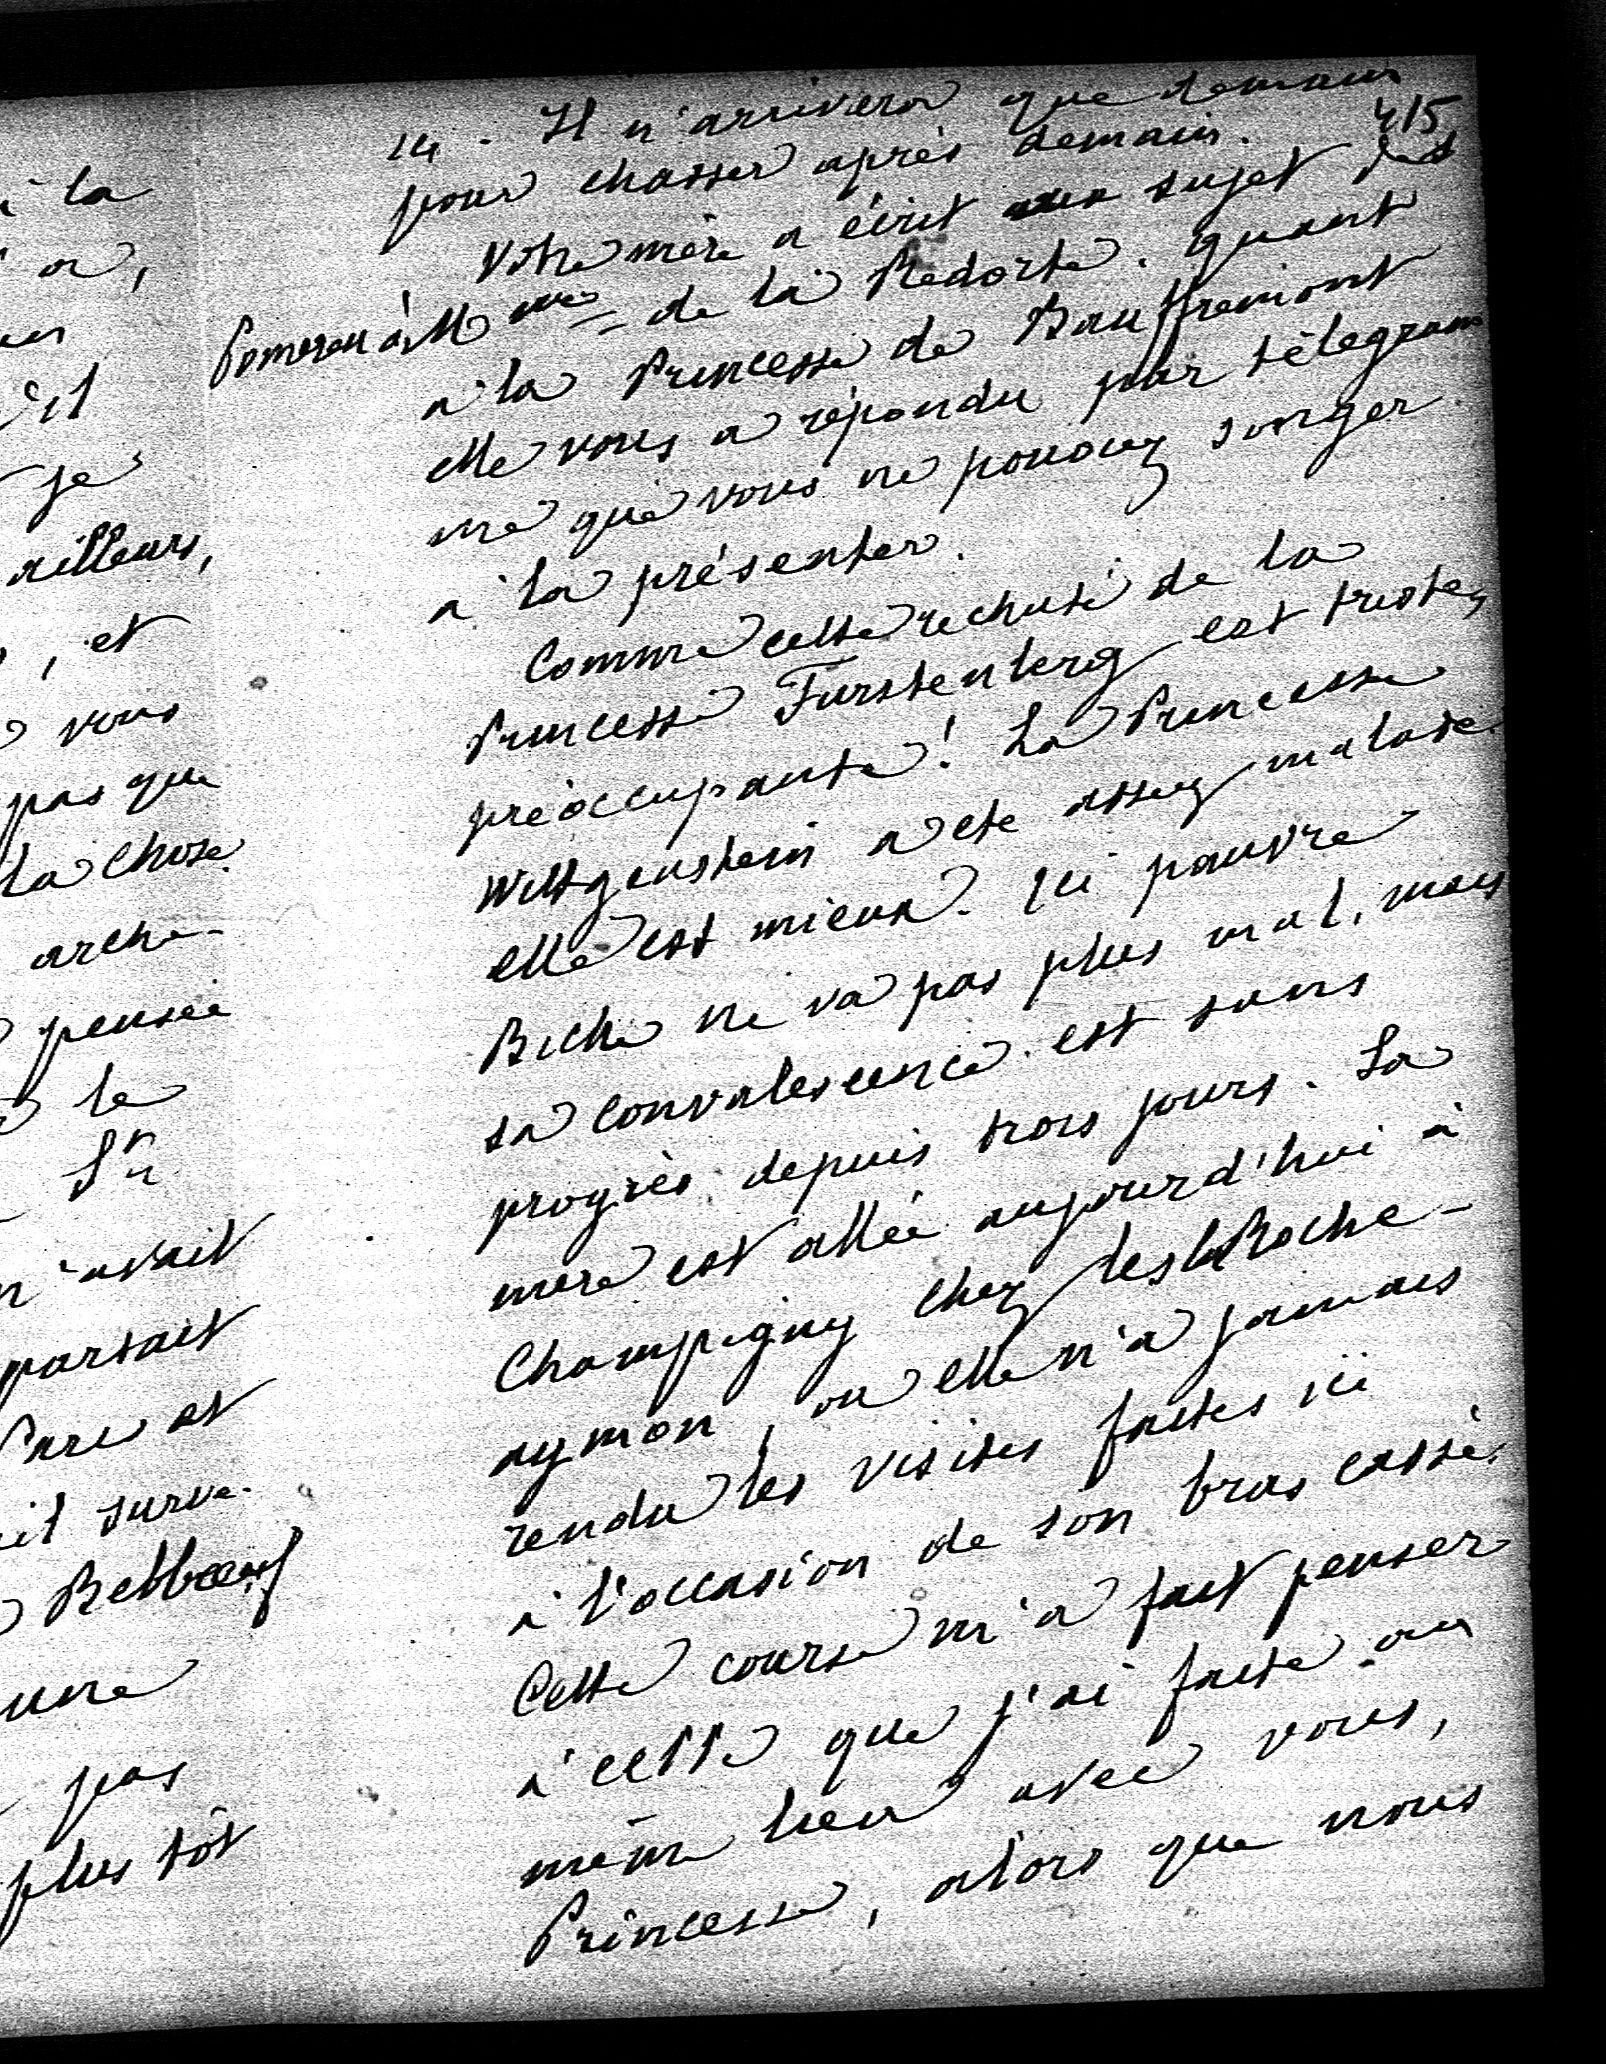 à la
a,
il
je
ailleurs,
, et
vous
pas que
la chose
arche-
pensée
le
St
n'avait
partait
Parc et
it surve-
Belbœuf
une
pas
plus tôt
415
14. Il n'arrivera que demain
pour chasser après demain.
Votre mère a écrit au sujet des
Pomereu à Mme de la Redorte. quant
à la Princesse de Bauffremont
elle vous a répondu par télégram
me que vous ne pouvez songer
à la présenter.
Comme cette rechute de la
Princesse Furstenberg est triste,
préoccupante! La Princesse
Wittgenstein a été assez malade
elle est mieux. Ici pauvre
Biche ne va pas plus mal, mais
sa convalescence est sans
progrès depuis trois jours. Sa
mere est allée aujourd'hui à
Champigny chez les la Roche-
aymon, ou elle n'a jamais
rendu les visites faites ici
à l'occasion de son bras cassé.
Cette course m'a fait penser
à celle que j'ai faite au
même lieu avec vous,
Princesse, alors que nous